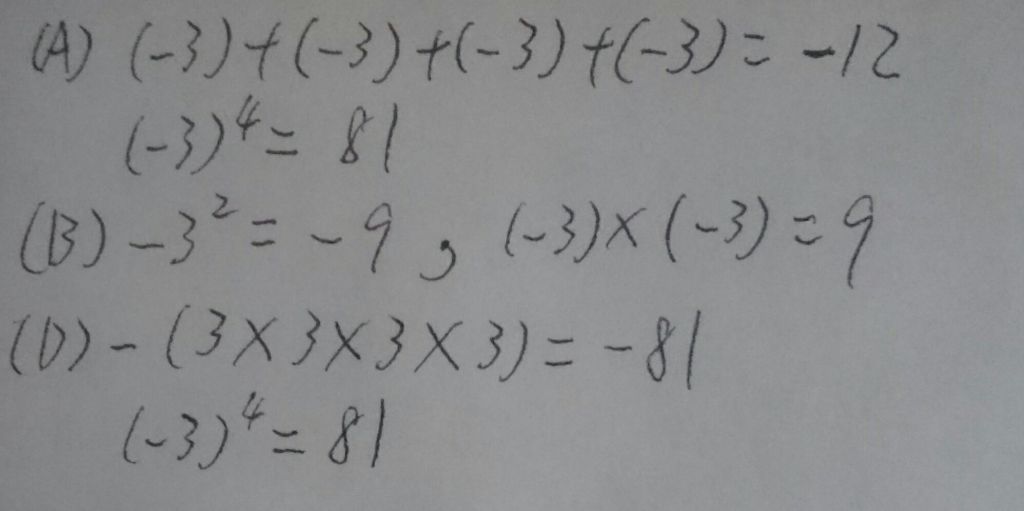 (A) (-3)+(-3)+(-3)+(-3)=-12
(-3)⁴=81
(B) -3²=-9, (-3)×(-3)=9
(D) -(3×3×3×3)=-81
(-3)⁴=81